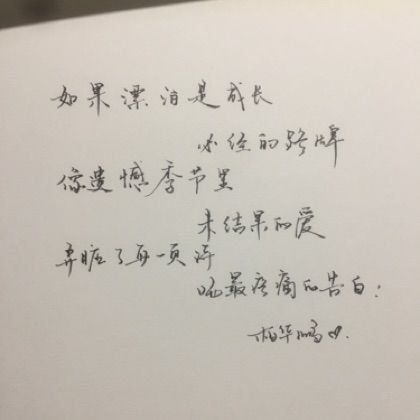 如果漂泊是成长
必经的路牌
像遗憾季节里
未结果的爱
弄脏了每一页诗
吻最疼痛的告白: